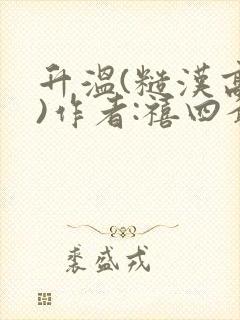 升温(糙漢高
)作者:禧四
裘盛戎